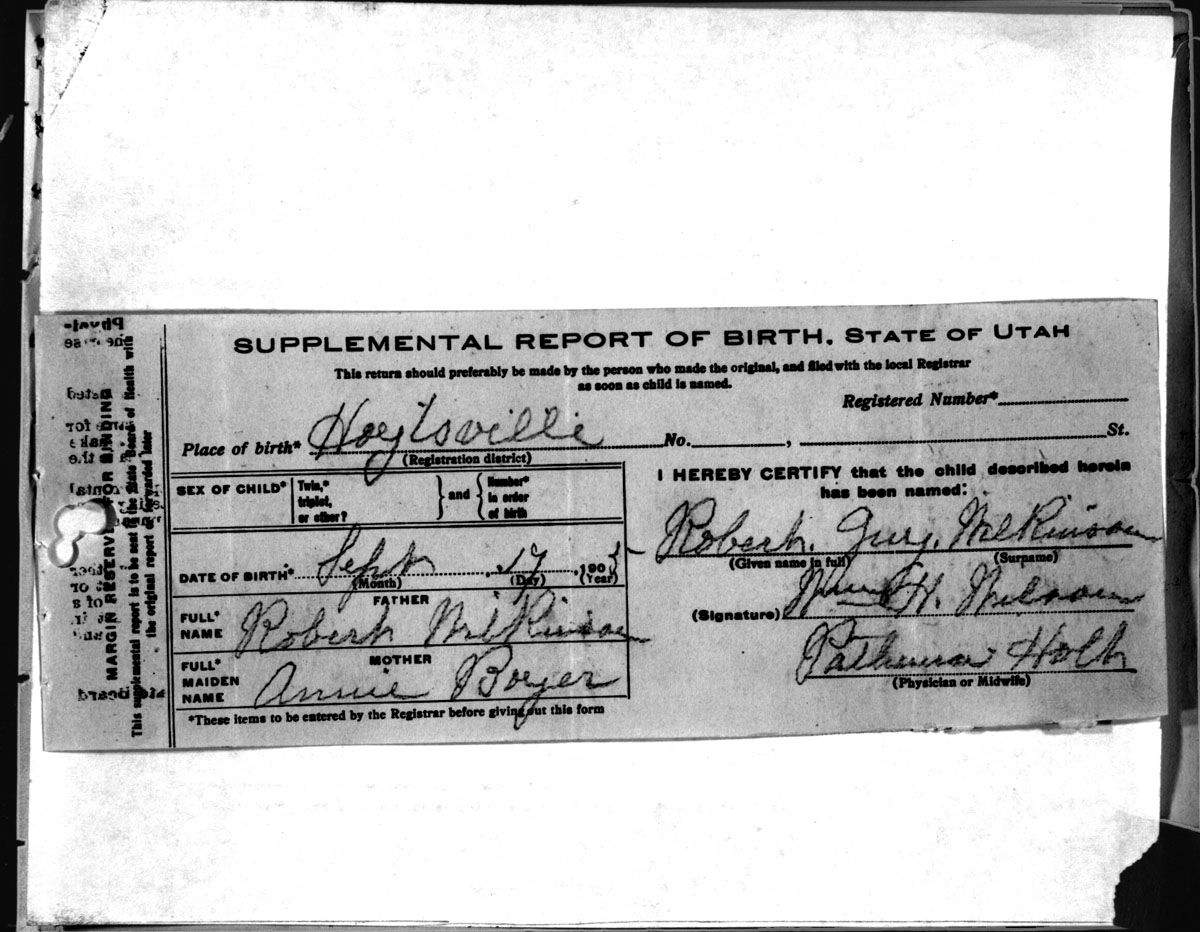 SUPPLEMENTAL REPORT OF BIRTH, STATE OF UTAH
This return should preferably be made by the person who made the original, and filed with the local Registrar
as soon as child is named.
Registered Number*
Place of birth* Hoytsville No. , St.
(Registration district)
SEX OF CHILD* Twin,* triplet, or other? } and { Number* in order of birth }
DATE OF BIRTH* Sept 17, 190
(Month) (Day) (Year)
FATHER
FULL* NAME Robert Wilkinson
MOTHER
FULL* MAIDEN NAME Annie Boyer
*These items to be entered by the Registrar before giving out this form
I HEREBY CERTIFY that the child described herein
has been named:
Robert Wilkinson
(Given name in full) (Surname)
(Signature) H. Wilson
Holt
(Physician or Midwife)
MARGIN RESERVED FOR BINDING
This supplemental report is to be sent to the State Board of Health with
the original report or forwarded later